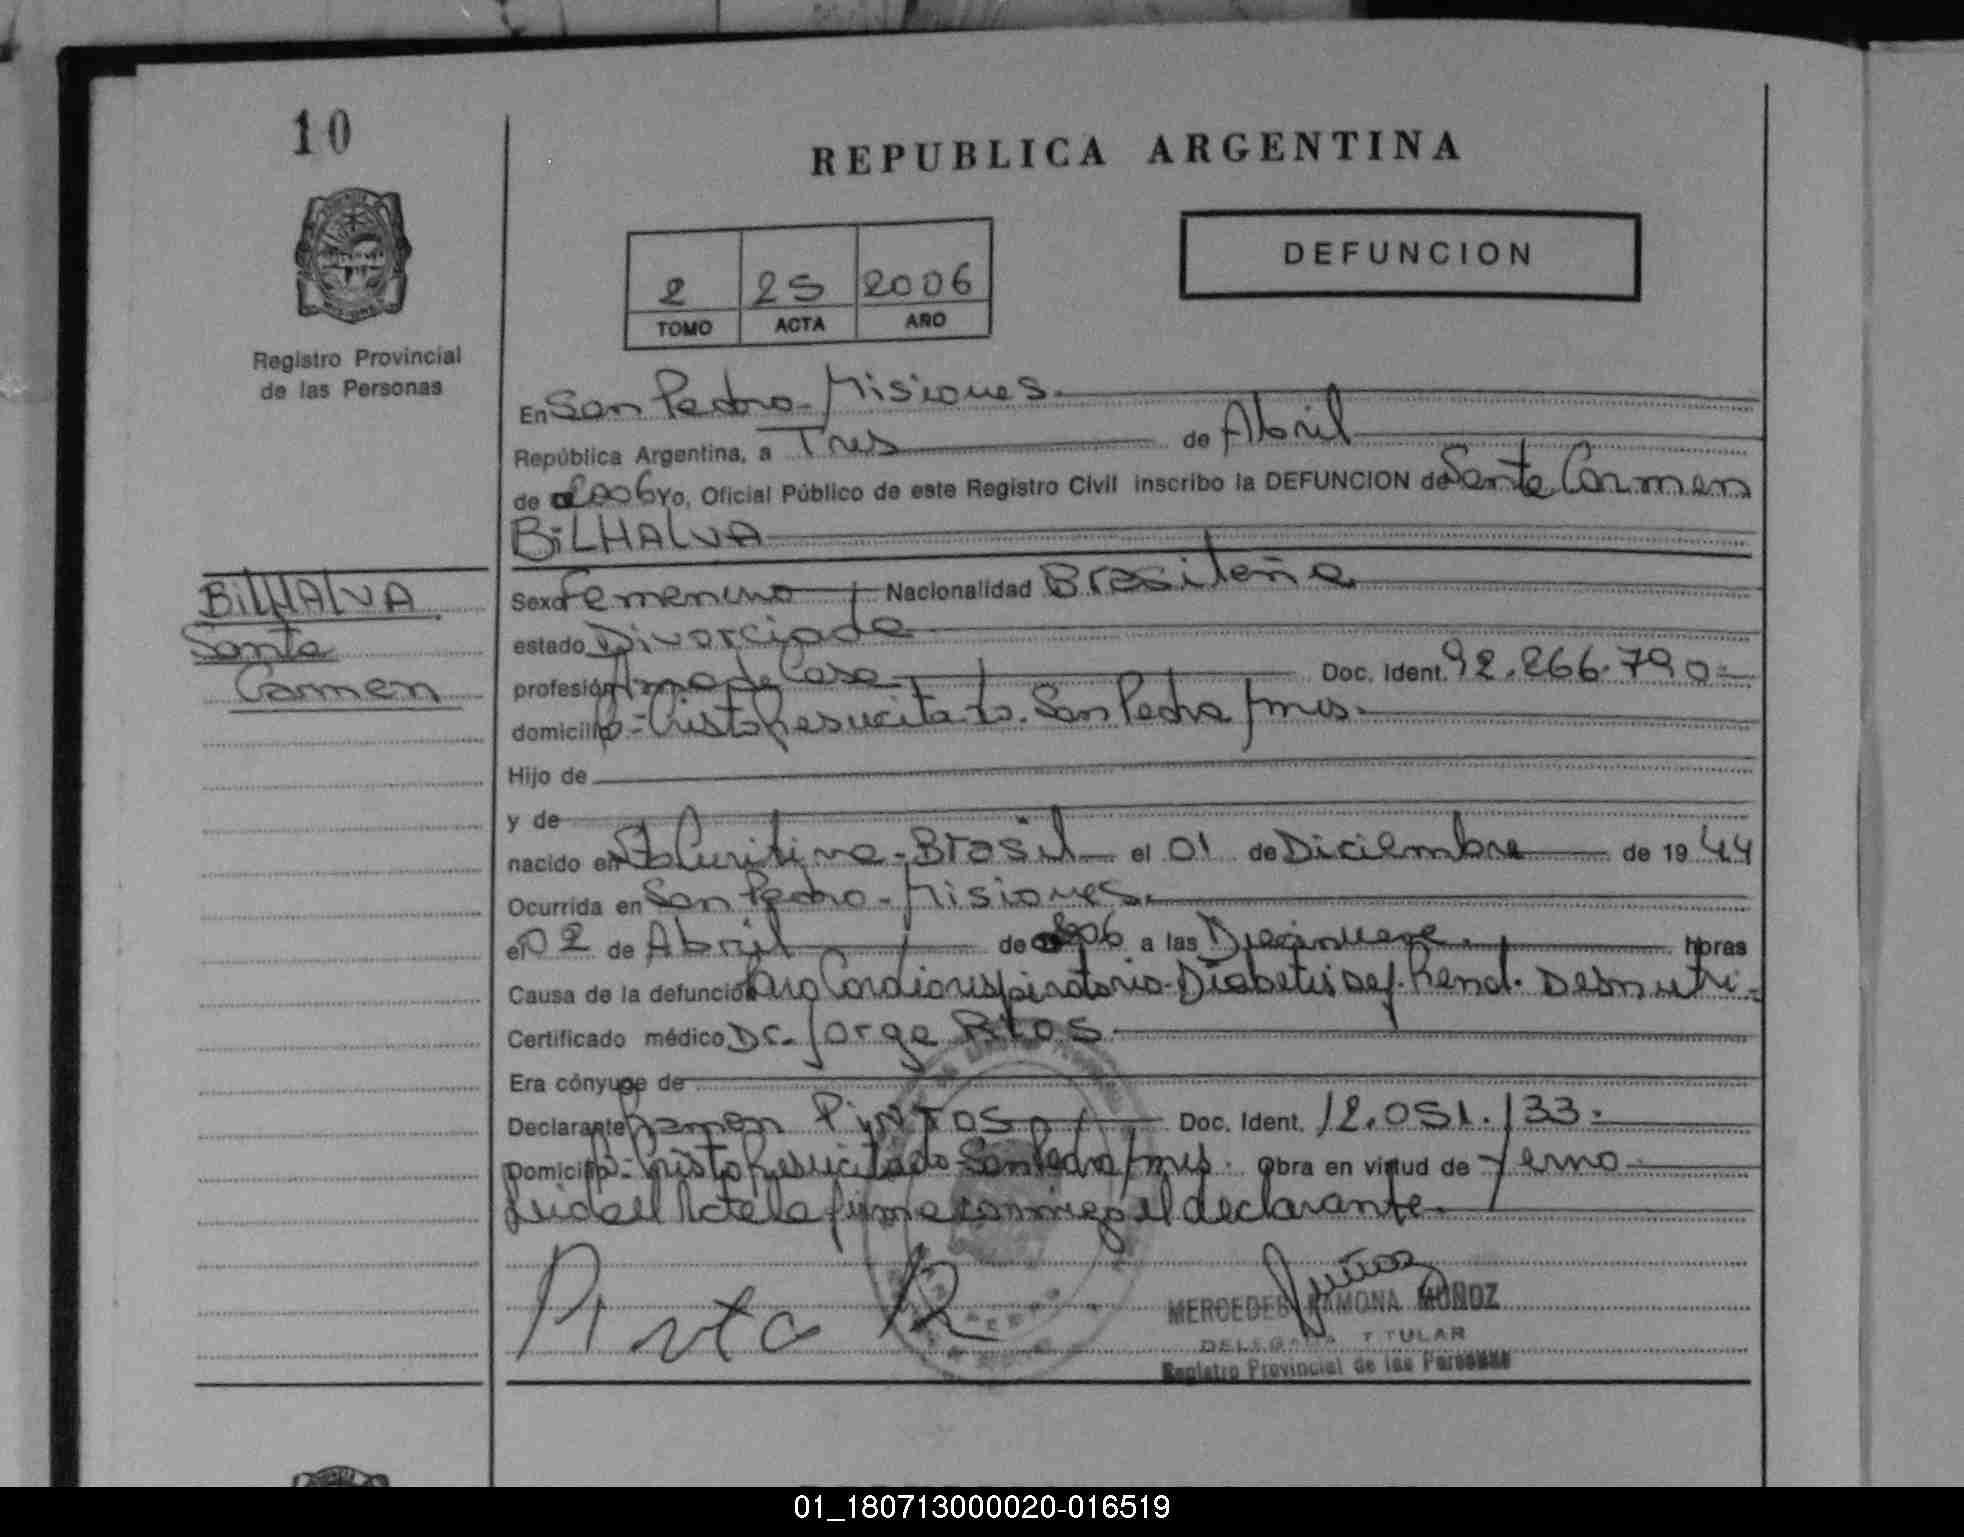 10
REPUBLICA ARGENTINA
DEFUNCION
2 25 2006
TOMO ACTA AÑO
Registro Provincial
de las Personas
En San Pedro - Misiones.
República Argentina, a Tres de Abril
de 2006 Yo, Oficial Público de este Registro Civil inscribo la DEFUNCION de Santa Carmen
BiLHALVA
BilHAlVA
Santa
Carmen
Sexo Femenino Nacionalidad Brasileña
estado Divorciada
profesión Ama de Casa Doc. Ident. 92.266.790
domicilio B - Cristo Resucitado. San Pedro Mnes.
Hijo de
y de
nacido en Curitiva - Brasil el 01 de Diciembre de 19 44
Ocurrida en San Pedro - Misiones.
el 02 de Abril de 2006 a las Diecinueve. horas
Causa de la defunción Paro Cardiorespiratorio - Diabetis Def. Renal. Desnutri-
Certificado médico Dr. Jorge Rios
Era cónyuge de
Declarante Ramon PiNTOS Doc. Ident. 12.051.133.
Domicilio B - Cristo Resucitado San Pedro Mnes. Obra en virtud de Yerno
Leida el Acta la firma conmigo el declarante.
Pinto R
Muñoz
MERCEDES RAMONA MUÑOZ
DELEGADA TITULAR
Registro Provincial de las Personas
01_180713000020-016519